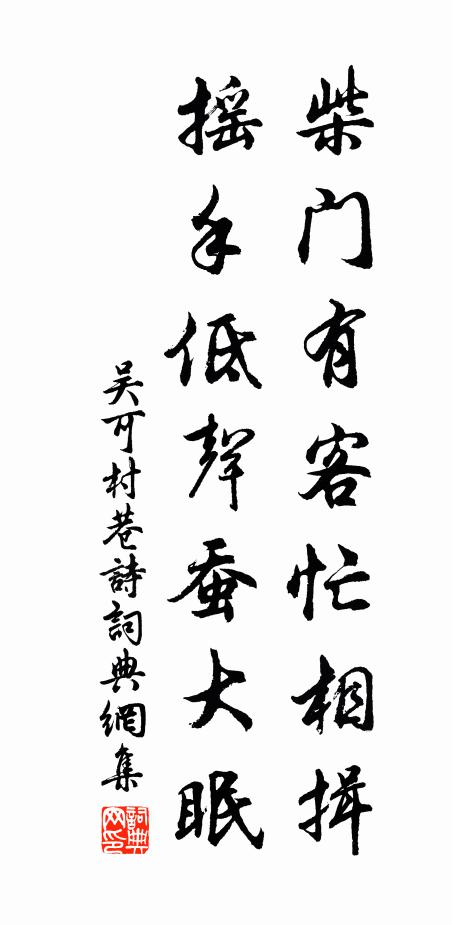 柴门有客忙相揖
摇手低聲蚕大眠
吴可村巷詩詞典網集
詞典网印